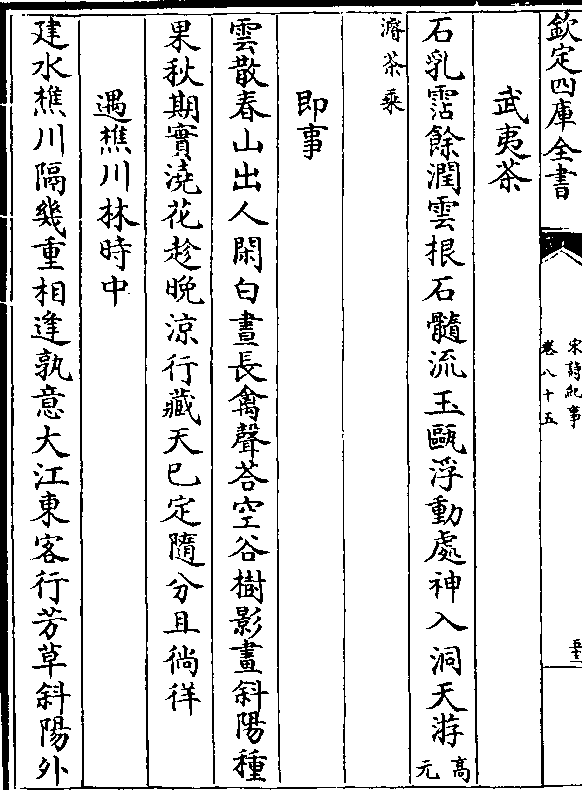 欽定四庫全書
宋詩紀事
卷八十五
武夷茶
石乳霑餘潤雲根石髓流玉甌浮動處神入洞天游高元
濬茶乘
即事
雲散春山出人閑白晝長禽聲荅空谷樹影畫斜陽種
果秋期實澆花趁晚涼行藏天已定隨分且徜徉
遇樵川林時中
建水樵川隔幾重相逢孰意大江東客行芳草斜陽外